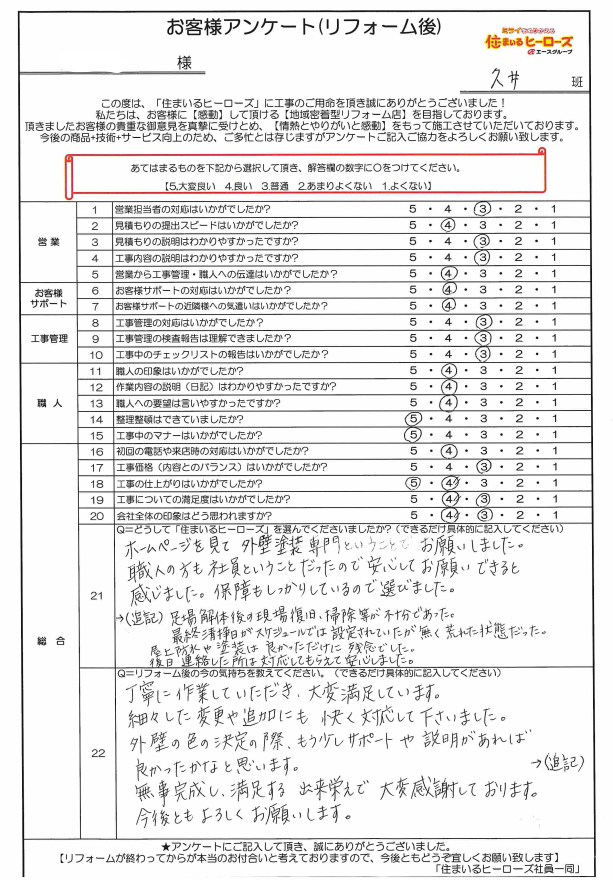 お客様アンケート(リフォーム後)
ミライをささえる
住まいるヒーローズ
エースグループ
様
久井 班
この度は、「住まいるヒーローズ」に工事のご用命を頂き誠にありがとうございました！
私たちは、お客様に【感動】して頂ける【地域密着型リフォーム店】を目指しております。
頂きましたお客様の貴重な御意見を真摯に受けとめ、【情熱とやりがいと感動】をもって施工させていただいております。
今後の商品+技術+サービス向上のため、ご多忙とは存じますがアンケートご記入ご協力をよろしくお願い致します。
あてはまるものを下記から選択して頂き、解答欄の数字に〇をつけてください。
【5.大変良い　4.良い　3.普通　2.あまりよくない　1.よくない】
営業
1 営業担当者の対応はいかがでしたか? 5・4・3・2・1
2 見積もりの提出スピードはいかがでしたか? 5・4・3・2・1
3 見積もりの説明はわかりやすかったですか? 5・4・3・2・1
4 工事内容の説明はわかりやすかったですか? 5・4・3・2・1
5 営業から工事管理・職人への伝達はいかがでしたか? 5・4・3・2・1
お客様サポート
6 お客様サポートの対応はいかがでしたか? 5・4・3・2・1
7 お客様サポートの近隣様への気遣いはいかがでしたか? 5・4・3・2・1
工事管理
8 工事管理の対応はいかがでしたか? 5・4・3・2・1
9 工事管理の検査報告は理解できましたか? 5・4・3・2・1
10 工事中のチェックリストの報告はいかがでしたか? 5・4・3・2・1
職人
11 職人の印象はいかがでしたか? 5・4・3・2・1
12 作業内容の説明（日記）はわかりやすかったですか? 5・4・3・2・1
13 職人への要望は言いやすかったですか? 5・4・3・2・1
14 整理整頓はできていましたか? 5・4・3・2・1
15 工事中のマナーはいかがでしたか? 5・4・3・2・1
総合
16 初回の電話や来店時の対応はいかがでしたか? 5・4・3・2・1
17 工事価格（内容とのバランス）はいかがでしたか? 5・4・3・2・1
18 工事の仕上がりはいかがでしたか? 5・4・3・2・1
19 工事についての満足度はいかがでしたか? 5・4・3・2・1
20 会社全体の印象はどう思われますか? 5・4・3・2・1
21
Q=どうして「住まいるヒーローズ」を選んでくださいましたか?（できるだけ具体的に記入してください）
ホームページを見て 外壁塗装専門ということで お願いしました。
職人の方も社員ということだったので安心してお願いできると
感じました。保障もしっかりしているので選びました。
→(追記) 足場解体後の現場復旧、掃除等が不十分であった。
最終清掃日がスケジュールでは設定されていたが無く荒れた状態だった。
屋上防水や塗装は良かっただけに残念でした。
後日連絡した所は対応してもらえて安心しました。
22
Q=リフォーム後の今の気持ちを教えてください。（できるだけ具体的に記入してください）
丁寧に作業していただき、大変満足しています。
細々した変更や追加にも快く対応して下さいました。
外壁の色の決定の際、もう少しサポートや説明があれば
良かったかなと思います。 →(追記)
無事完成し、満足する出来栄えで大変感謝しております。
今後ともよろしくお願いします。
★アンケートにご記入して頂き、誠にありがとうございました。
【リフォームが終わってからが本当のお付合いと考えておりますので、今後ともどうぞ宜しくお願い致します】
「住まいるヒーローズ社員一同」